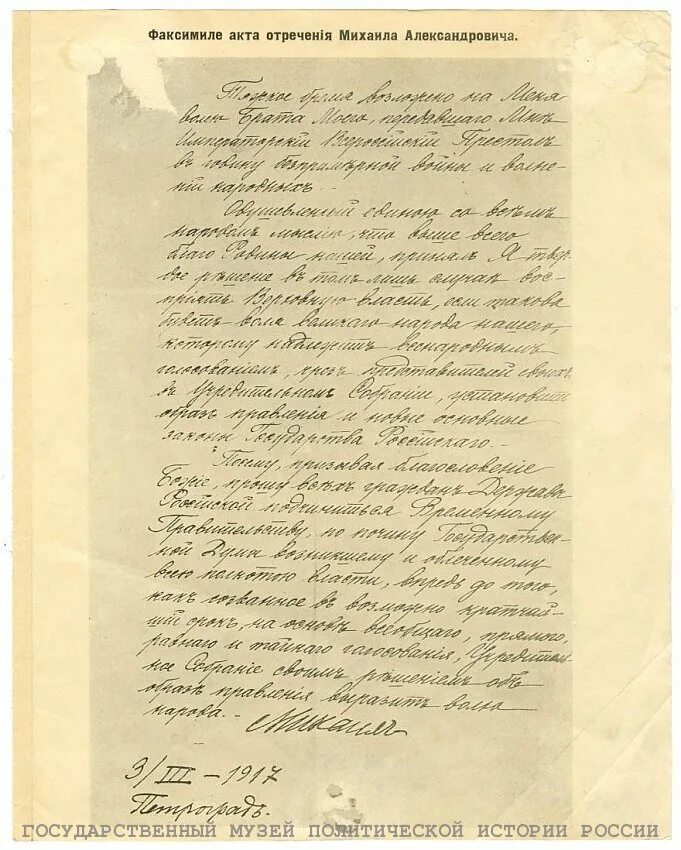 Факсимиле акта отреченія Михаила Александровича.
Тяжкое бремя возложено на Меня
волею Брата Моего, передавшаго Мнѣ
Императорскій Всероссійскій Престолъ
въ годину безпримѣрной войны и волне-
ній народныхъ.
Одушевленный единою со всѣмъ
народомъ мыслію, что выше всего
благо Родины нашей, принялъ Я твер-
дое рѣшеніе въ томъ лишь случаѣ вос-
пріять Верховную власть, если такова
будетъ воля великаго народа нашего,
которому надлежитъ всенароднымъ
голосованіемъ, чрезъ представителей своихъ
въ Учредительномъ Собраніи, установить
образъ правленія и новые основные
законы Государства Россійскаго.
Посему, призывая благословеніе
Божіе, прошу всѣхъ гражданъ Державы
Россійской подчиниться Временному
Правительству, по почину Государствен-
ной Думы возникшему и облеченному
всею полнотою власти, впредь до того,
какъ созванное въ возможно кратчай-
шій срокъ, на основѣ всеобщаго, прямого,
равнаго и тайнаго голосованія, Учредитель-
ное Собраніе своимъ рѣшеніемъ объ
образѣ правленія выразитъ волю
народа.
Михаилъ
3/III - 1917
Петроградъ.
ГОСУДАРСТВЕННЫЙ МУЗЕЙ ПОЛИТИЧЕСКОЙ ИСТОРИИ РОССИИ